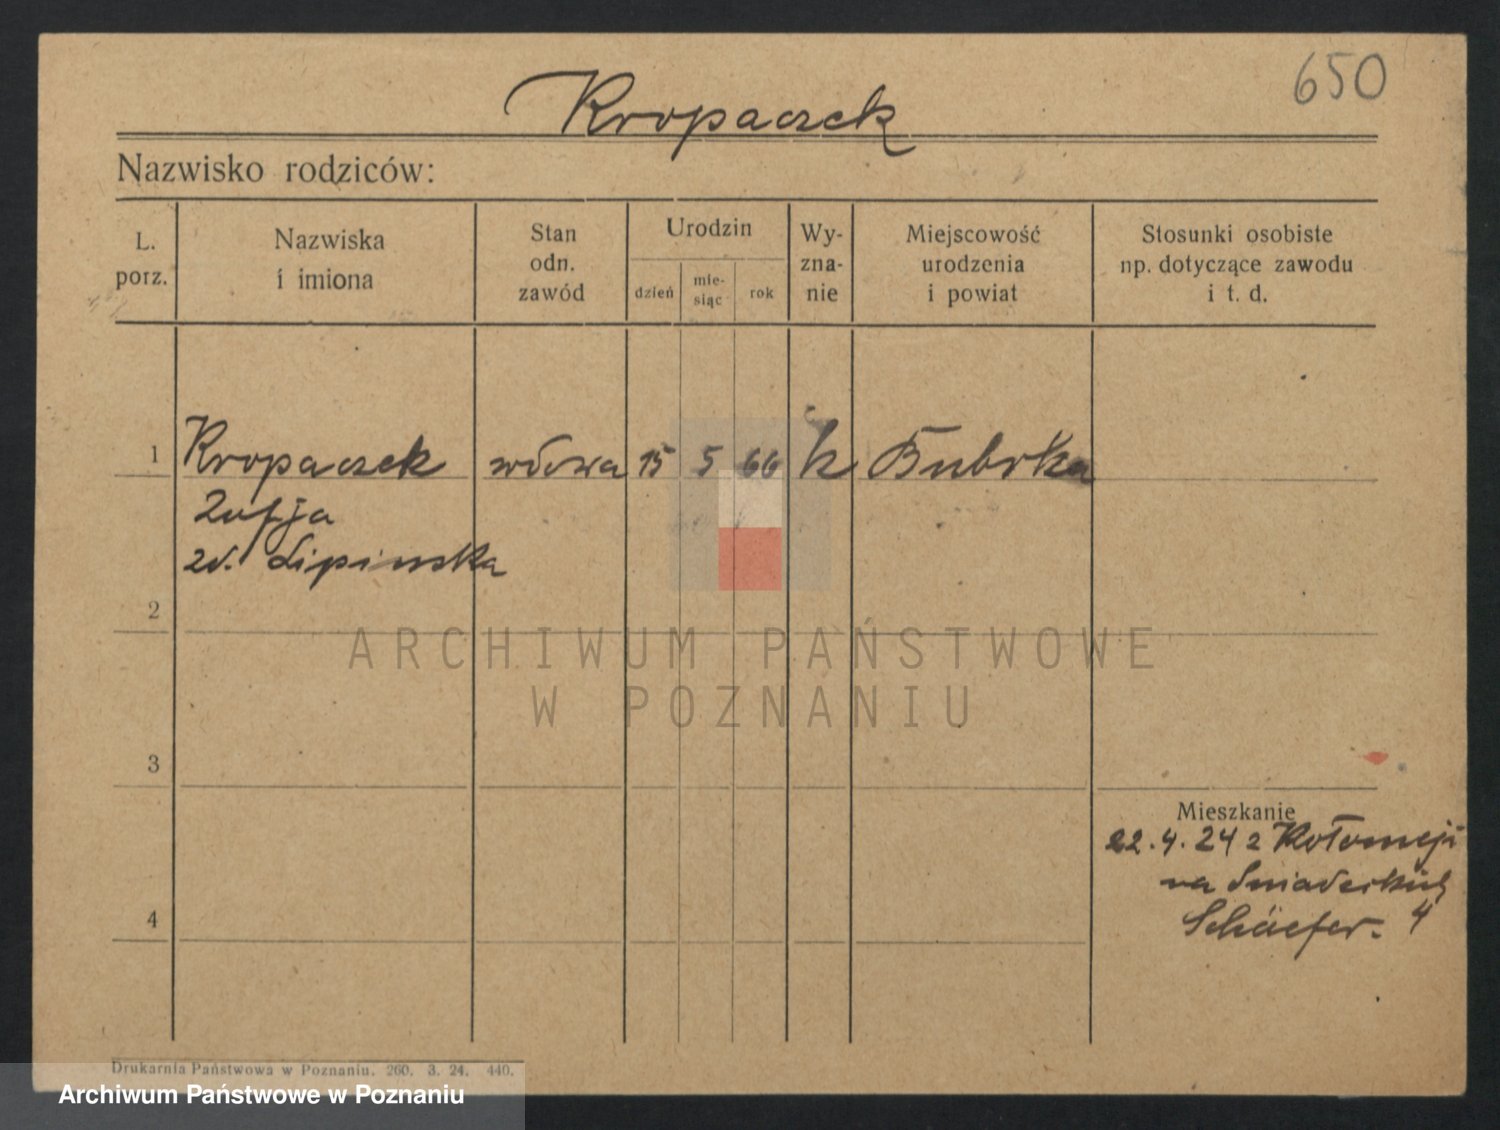 650
Kropaczek
Nazwisko rodziców:
L. porz.
Nazwiska i imiona
Stan odn. zawód
Urodzin
dzień
mie-siąc
rok
Wy-zna-nie
Miejscowość urodzenia i powiat
Stosunki osobiste np. dotyczące zawodu i t. d.
1 Kropaczek wdowa 15 5 66 k Bubrka
Zofja
zd. Lipinska
2
ARCHIWUM PAŃSTWOWE
W POZNANIU
3
Mieszkanie
22.4.24 z Kołomeji
na Sniadeckich
4 Schäefer. 4
Drukarnia Państwowa w Poznaniu. 260. 3. 24. 440.
Archiwum Państwowe w Poznaniu